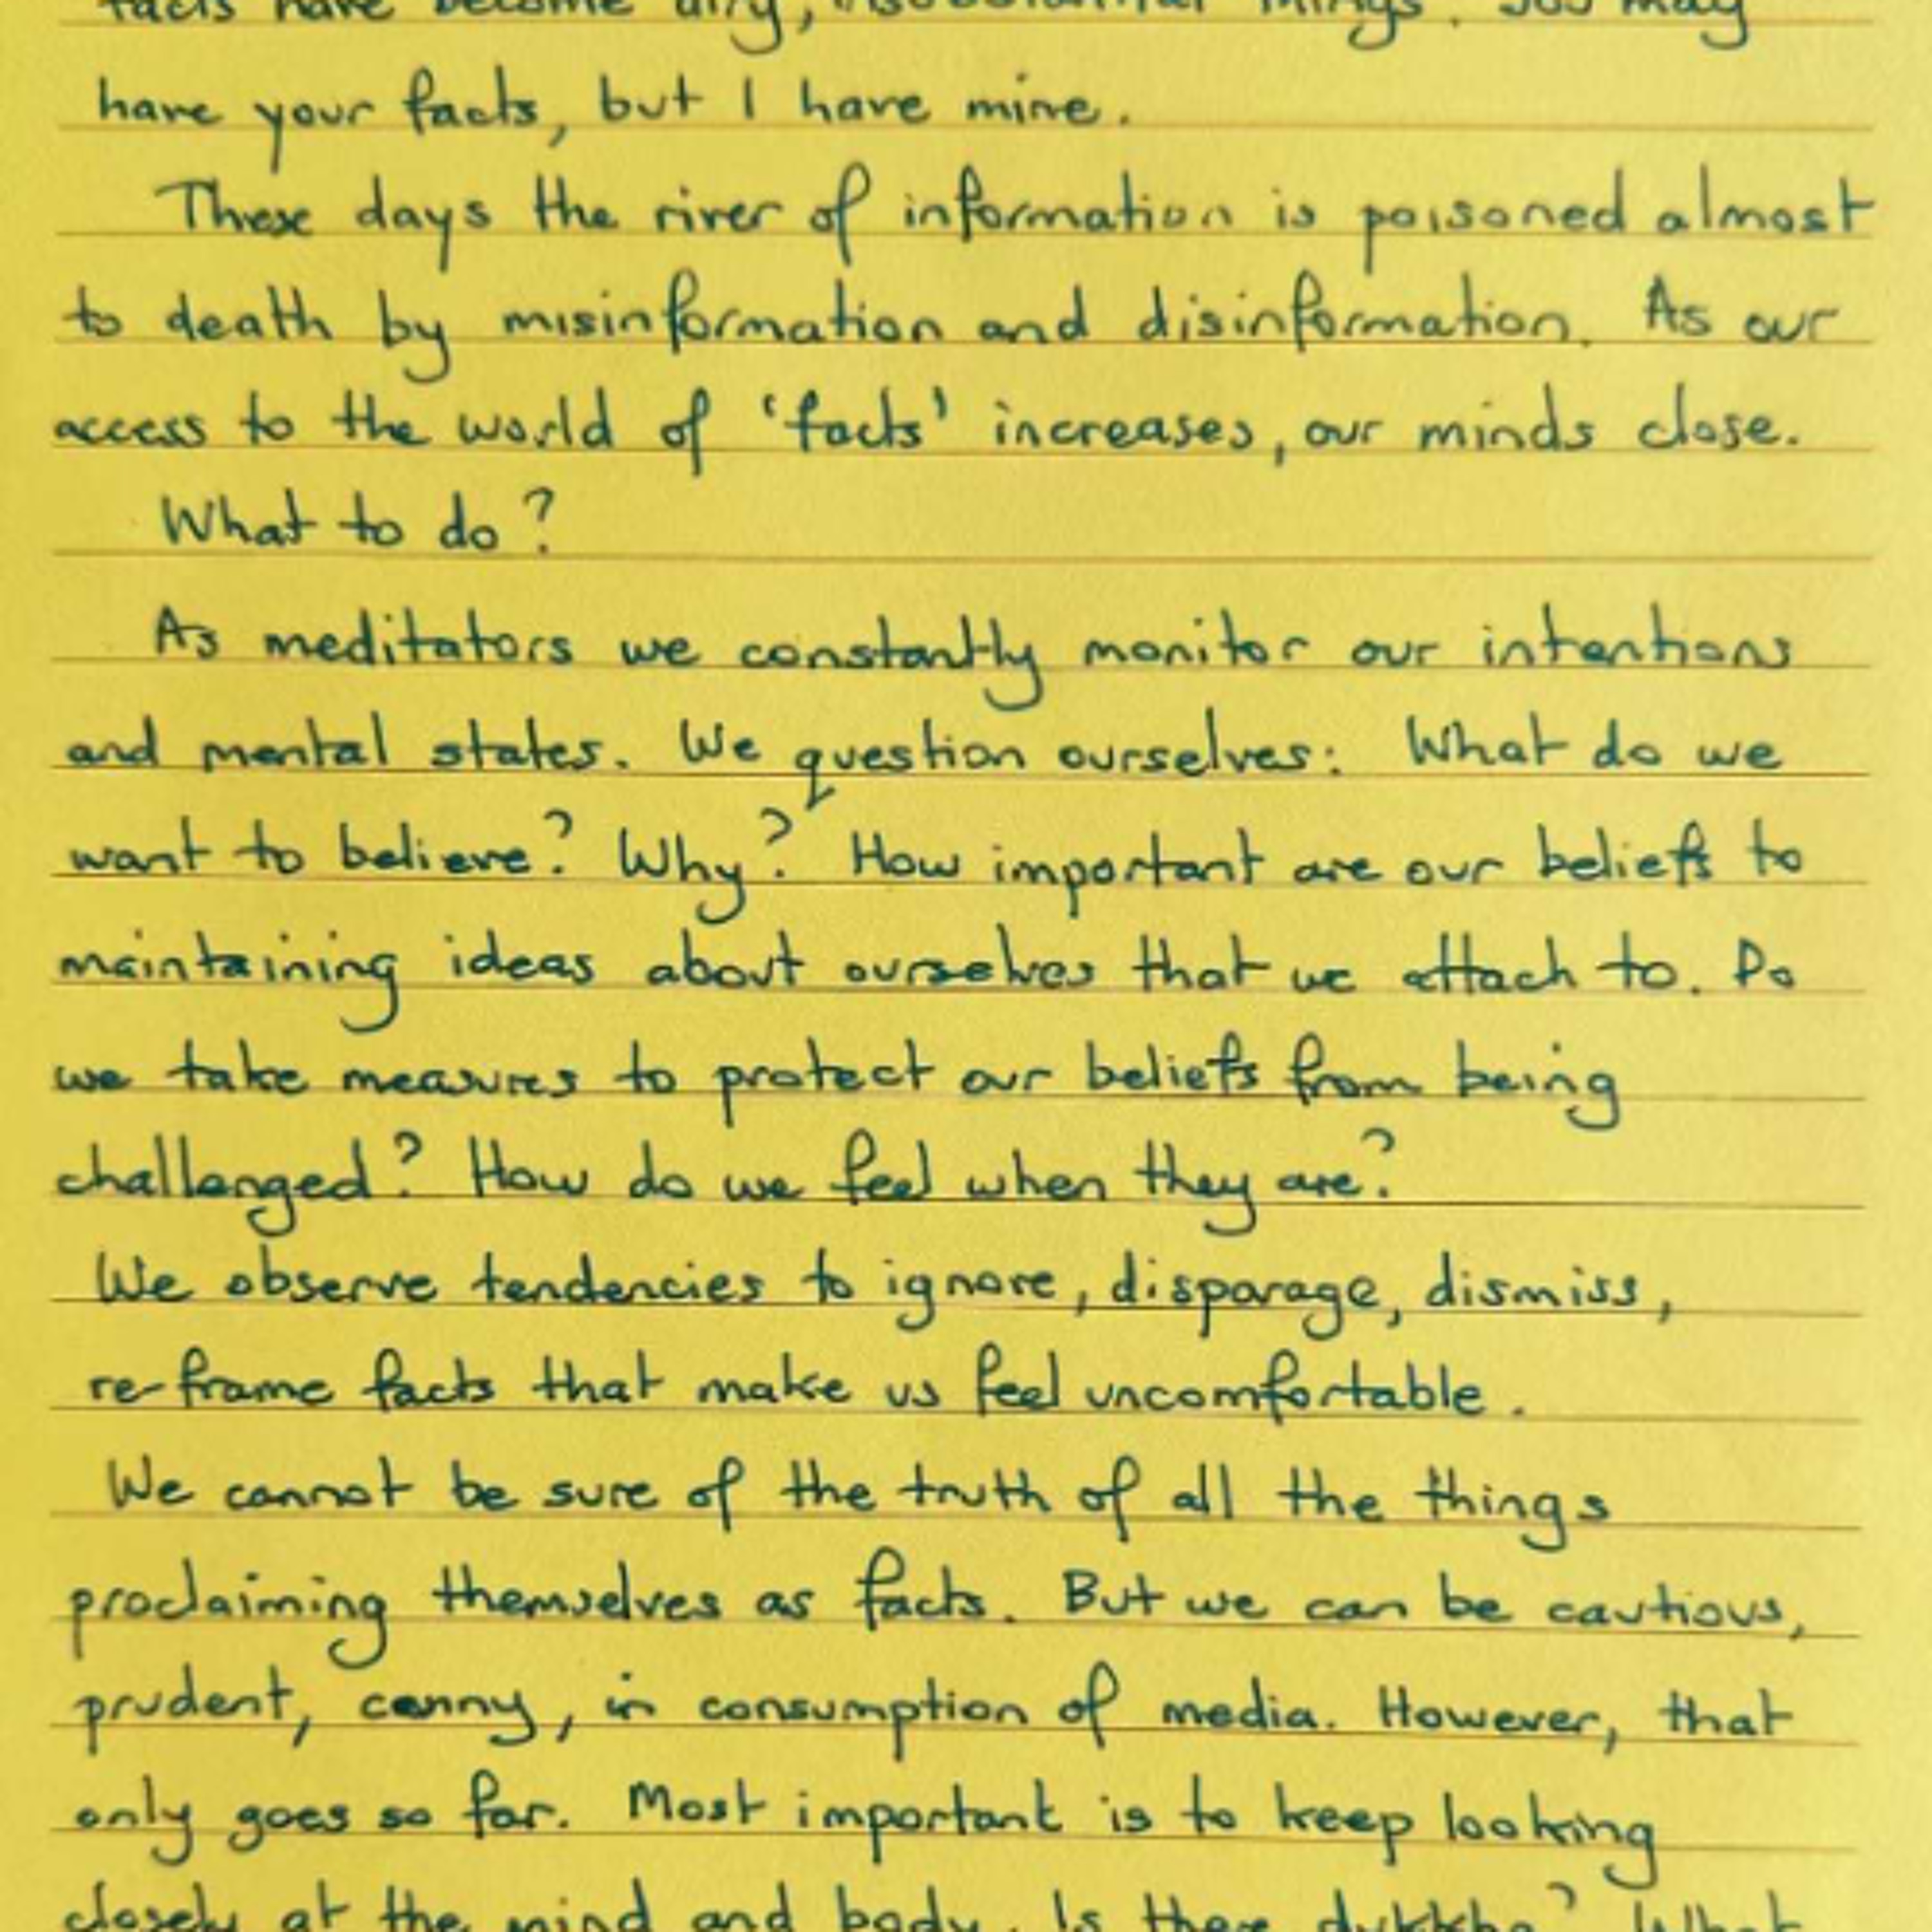 facts have become airy, insubstantial things. You may
have your facts, but I have mine.
These days the river of information is poisoned almost
to death by misinformation and disinformation. As our
access to the world of 'facts' increases, our minds close.
What to do?
As meditators we constantly monitor our intentions
and mental states. We question ourselves: What do we
want to believe? Why? How important are our beliefs to
maintaining ideas about ourselves that we attach to. Do
we take measures to protect our beliefs from being
challenged? How do we feel when they are?
We observe tendencies to ignore, disparage, dismiss,
re-frame facts that make us feel uncomfortable.
We cannot be sure of the truth of all the things
proclaiming themselves as facts. But we can be cautious,
prudent, canny, in consumption of media. However, that
only goes so far. Most important is to keep looking
closely at the mind and body. Is there dukkha? What